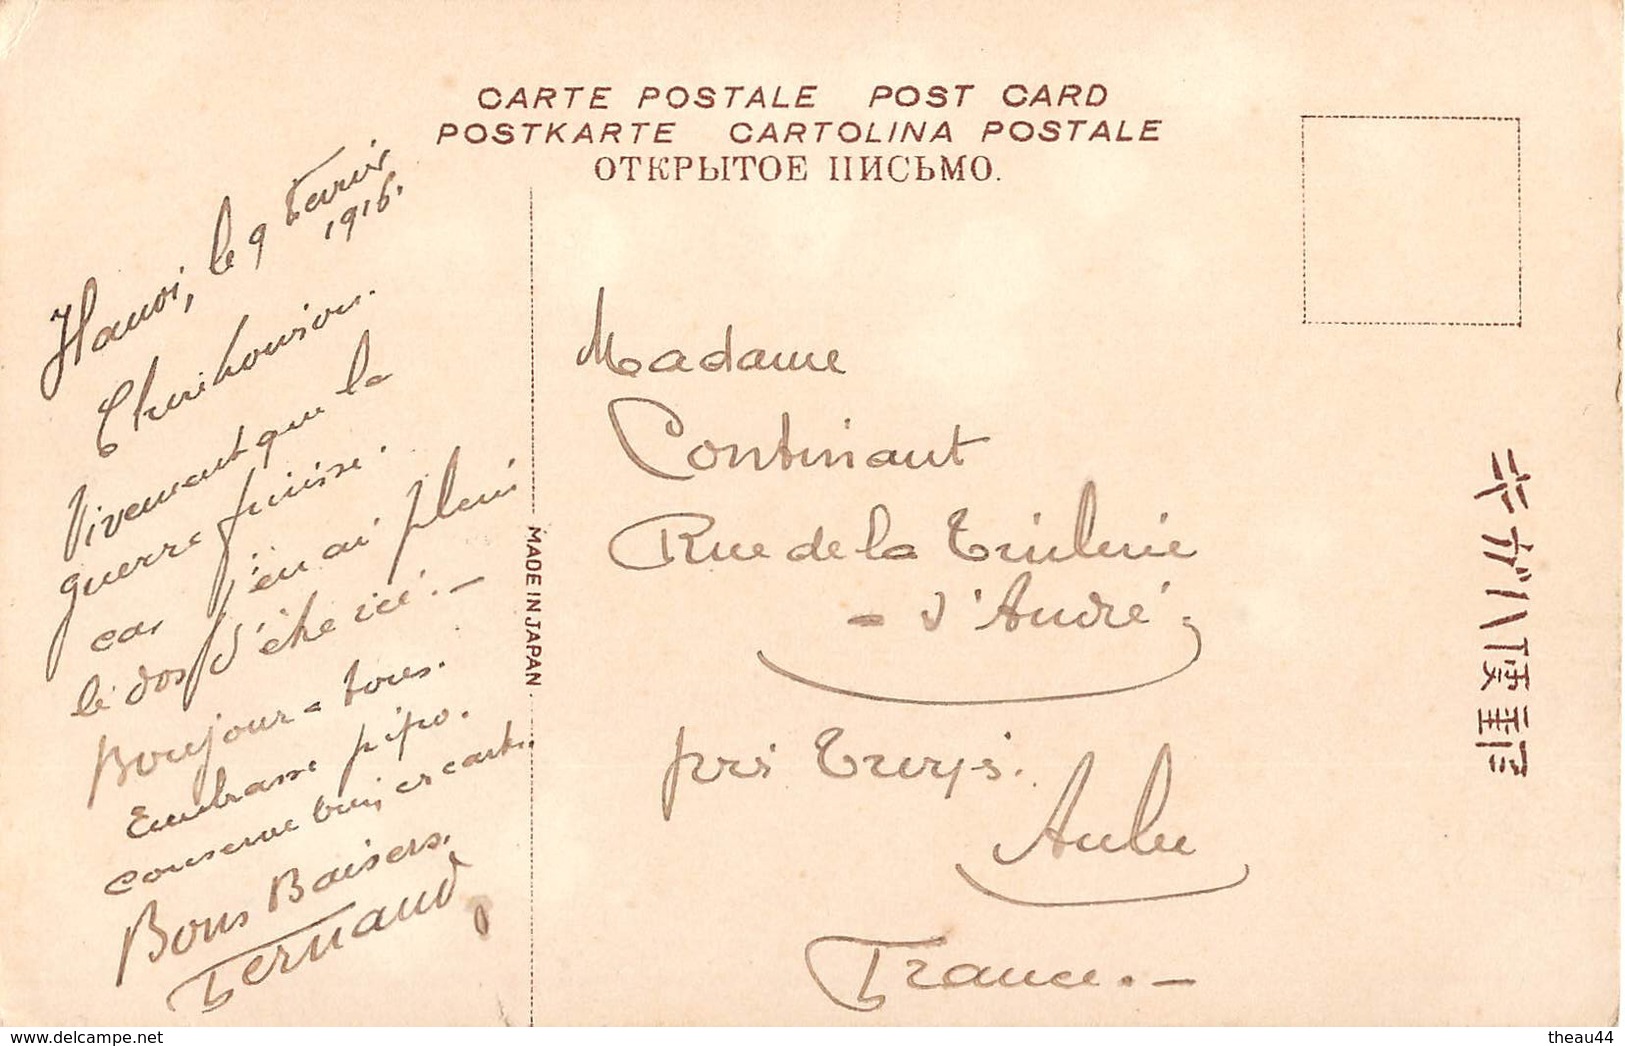 CARTE POSTALE POST CARD
POSTKARTE CARTOLINA POSTALE
ОТКРЫТОЕ ПИСЬМО.
Hanoi, le 9 Fevrier
1916.
Vivement que la
guerre finisse.
car j'en ai plein
le dos d'être ici. —
Bonjour à tous.
Embrasse pipo.
conserve bien, ces cartes.
Bons Baisers,
Fernand
MADE IN JAPAN.
Madame
Continant
Rue de la
- S' André -
près Troyes.
Aube
France. —
delcampe.net
theau44